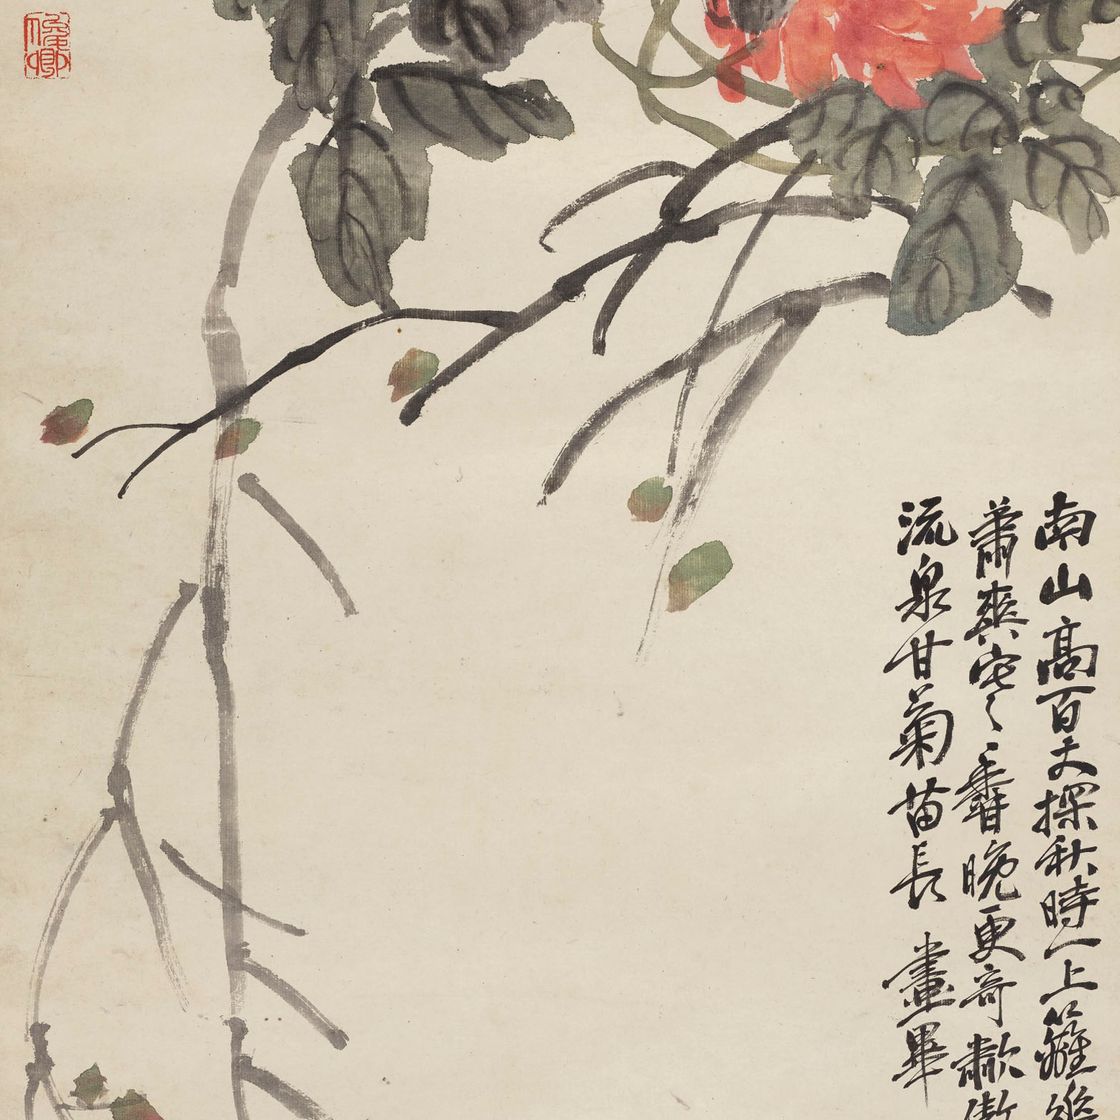 俊卿
南山高百丈探秋時一上籬
蕭爽寒香晚更奇歗傲
流泉甘菊苗長 畫畢